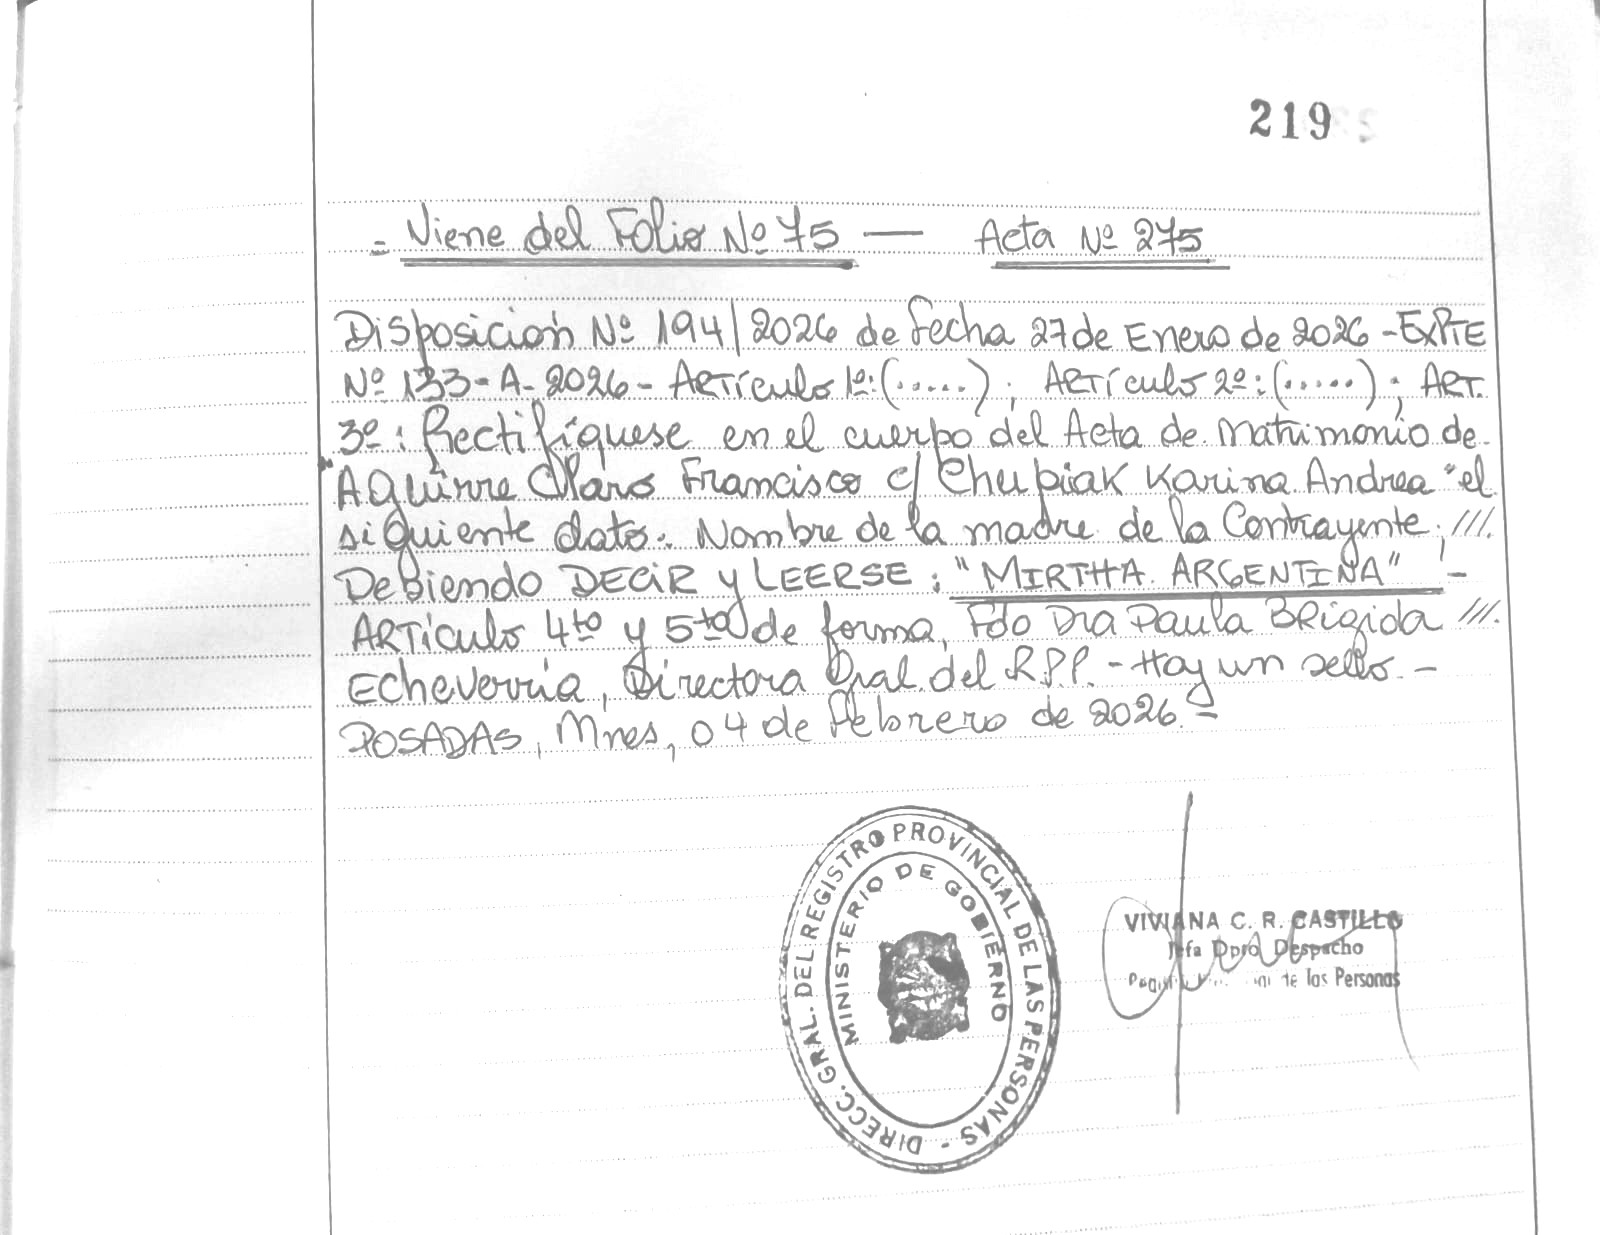 219
- Viene del Folio Nº 75 — Acta Nº 275
Disposición Nº 194/2026 de fecha 27 de Enero de 2026 - EXPTE
Nº 133-A-2026 - ARTículo 1º: (.....); ARTículo 2º: (.....); ART.
3º: Rectifíquese en el cuerpo del Acta de Matrimonio de
"Aguirre Francisco c/ Chupiak Karina Andrea" el
siguiente dato: Nombre de la madre de la Contrayente, ///.
Debiendo DECIR y LEERSE: "MIRTHA ARGENTINA" -
ARTículo 4to y 5to de forma, Fdo Dra Paula BRigida ///.
Echeverría, Directora Gral. del R.P.P. - Hay un sello. -
POSADAS, Mnes, 04 de Febrero de 2026. -
DIRECC. GRAL. DEL REGISTRO PROVINCIAL DE LAS PERSONAS -
MINISTERIO DE GOBIERNO
VIVIANA C. R. CASTILLO
Jefa Dpto Despacho
de las Personas